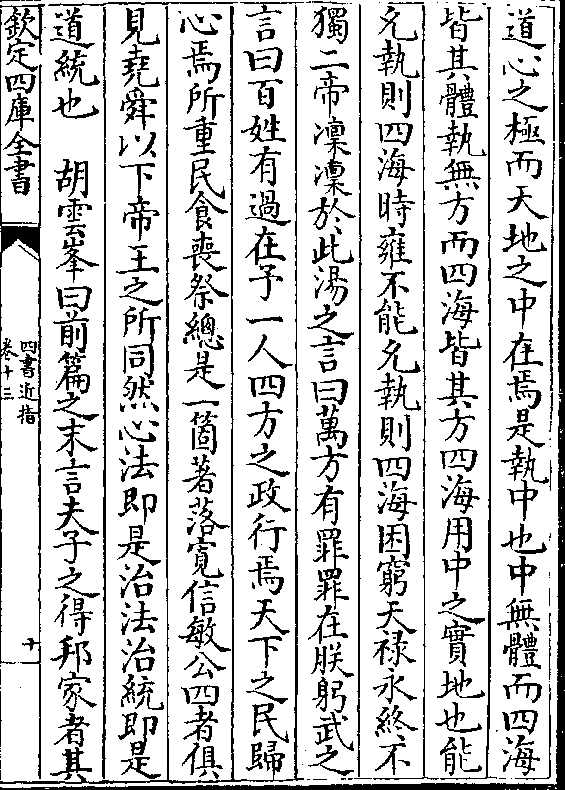 道心之極而天地之中在焉是執中也中無體而四海
皆其體執無方而四海皆其方四海用中之實地也能
允執則四海時雍不能允執則四海困窮天祿永終不
獨二帝凜凜於此湯之言曰萬方有罪罪在朕躬武之
言曰百姓有過在予一人四方之政行焉天下之民歸
心焉所重民食喪祭總是一箇著落寬信敏公四者俱
見堯舜以下帝王之所同然心法即是治法治統即是
道統也　胡雲峯曰前篇之末言夫子之得邦家者其
欽定四庫全書
四書近指
卷十三
十